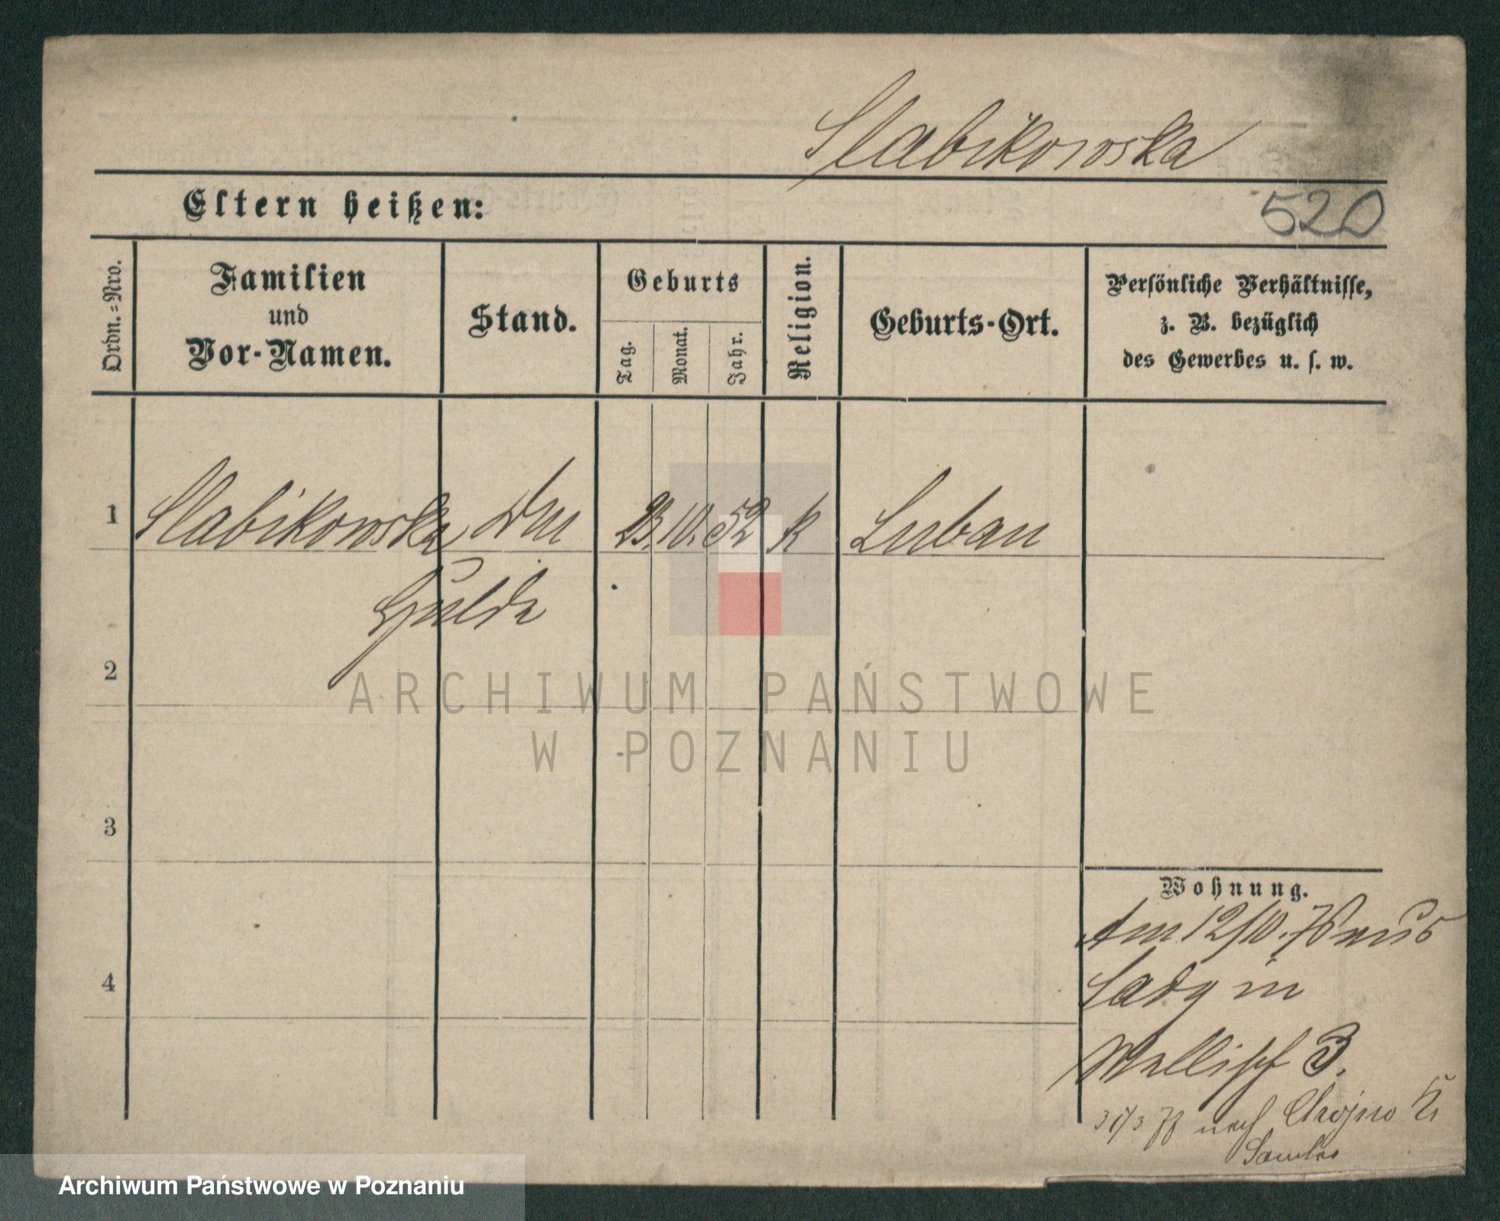 Slabikowska
Eltern heißen:
520
Ordn.=Nro.
Familien
und
Vor-Namen.
Stand.
Geburts
Tag.
Monat.
Jahr.
Religion.
Geburts-Ort.
Persönliche Verhältnisse,
z. B. bezüglich
des Gewerbes u. s. w.
1 Slabikowska 23. 10. 52 k Luban
2
3
4
Wohnung.
Am 12/10. 76 aus
Sady in
3.
31/3 77 nach Chojno
ARCHIWUM PAŃSTWOWE
W POZNANIU
Archiwum Państwowe w Poznaniu